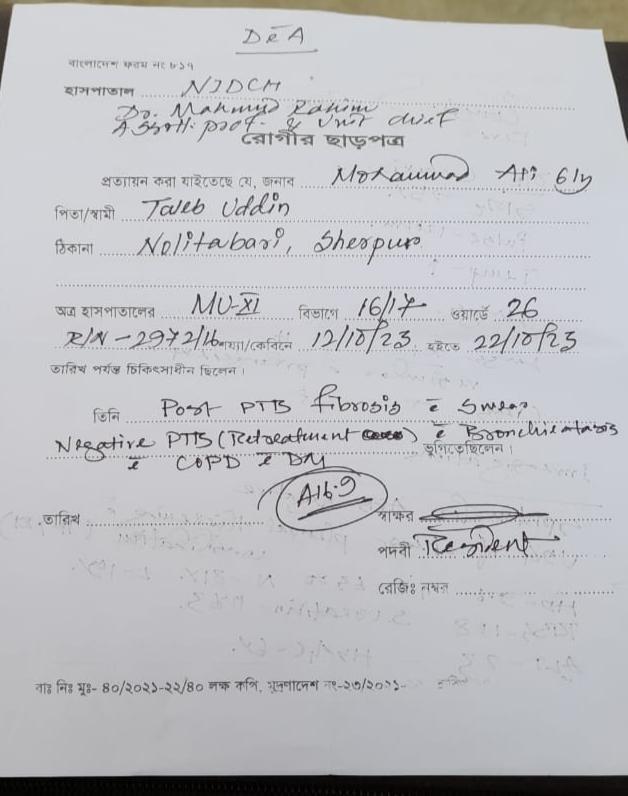 DēA
বাংলাদেশ ফরম নং ৮১৭
হাসপাতাল NIDCH
Dr. Mahmud Rahim
Asstt: prof. & Unit chief
রোগীর ছাড়পত্র
প্রত্যায়ন করা যাইতেছে যে, জনাব Mohammad Ali 61y
পিতা/স্বামী Taleb Uddin
ঠিকানা Nolitabari, Sherpur.
অত্র হাসপাতালের MU-XI বিভাগে 16/17 ওয়ার্ডে 26
R/N - 2972/16 শয্যা/কেবিনে 12/10/23 হইতে 22/10/23
তারিখ পর্যন্ত চিকিৎসাধীন ছিলেন।
তিনি Post PTB fibrosis ē Smear
Negative PTB (Retreatment ) ē Bronchiectasis
ē COPD ē DM ভুগিতেছিলেন।
A16.9
তারিখ
স্বাক্ষর
পদবী Resident
রেজিঃ নম্বর
বাঃ নিঃ মুঃ- ৪০/২০২১-২২/৪০ লক্ষ কপি, মুদ্রণাদেশ নং-২৩/২০২১-